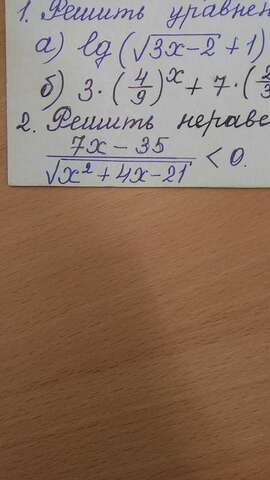 1. Решить уравнен
а) lg(√3x-2 + 1)
б) 3·(4/9)^x + 7·(2/3
2. Решить нераве
7x - 35 / √x² + 4x - 21 < 0.